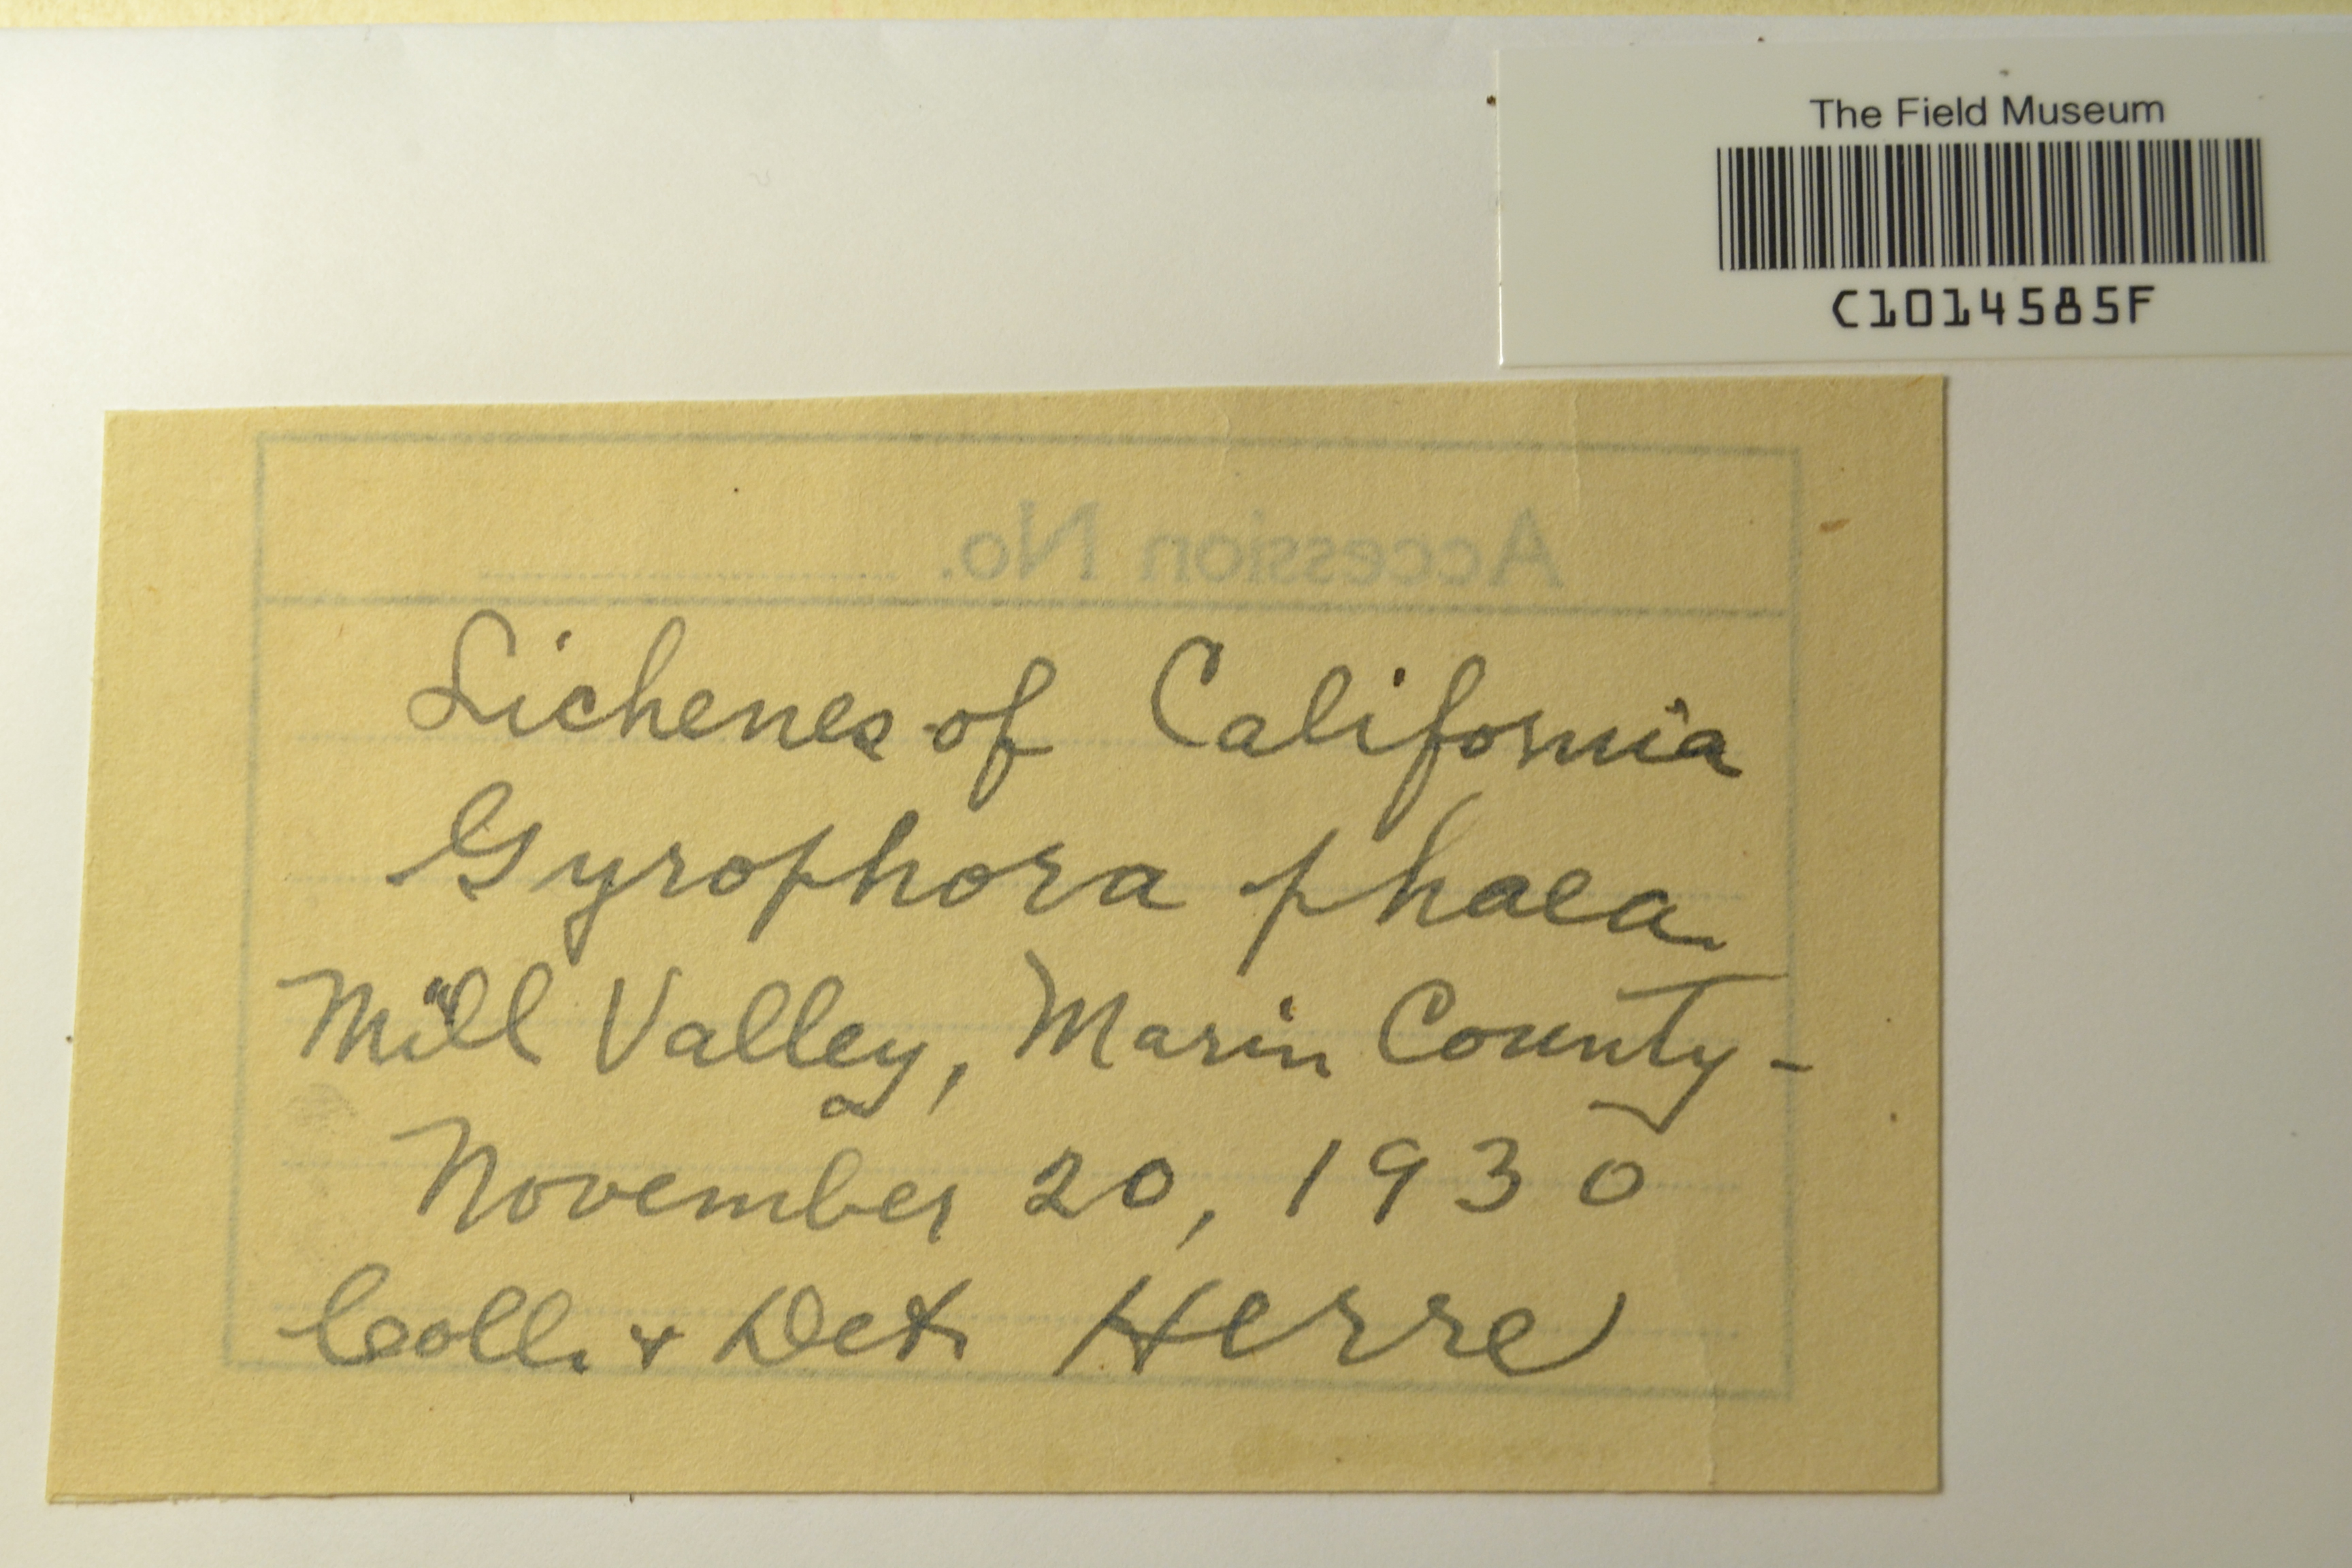 The Field Museum
C1014585F
Accession No.
Lichenes of California
Gyrophora phaea
Mill Valley, Marin County -
November 20, 1930
Coll. & Det. Herre